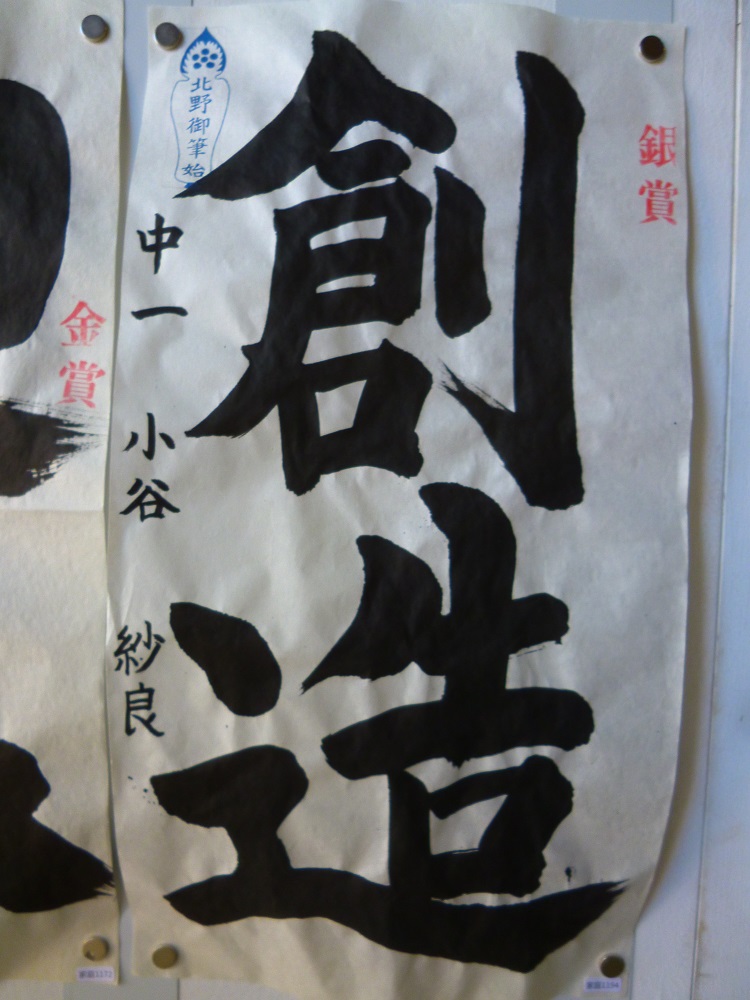 創造
銀賞
北野御筆始
中一 小谷 紗良
金賞